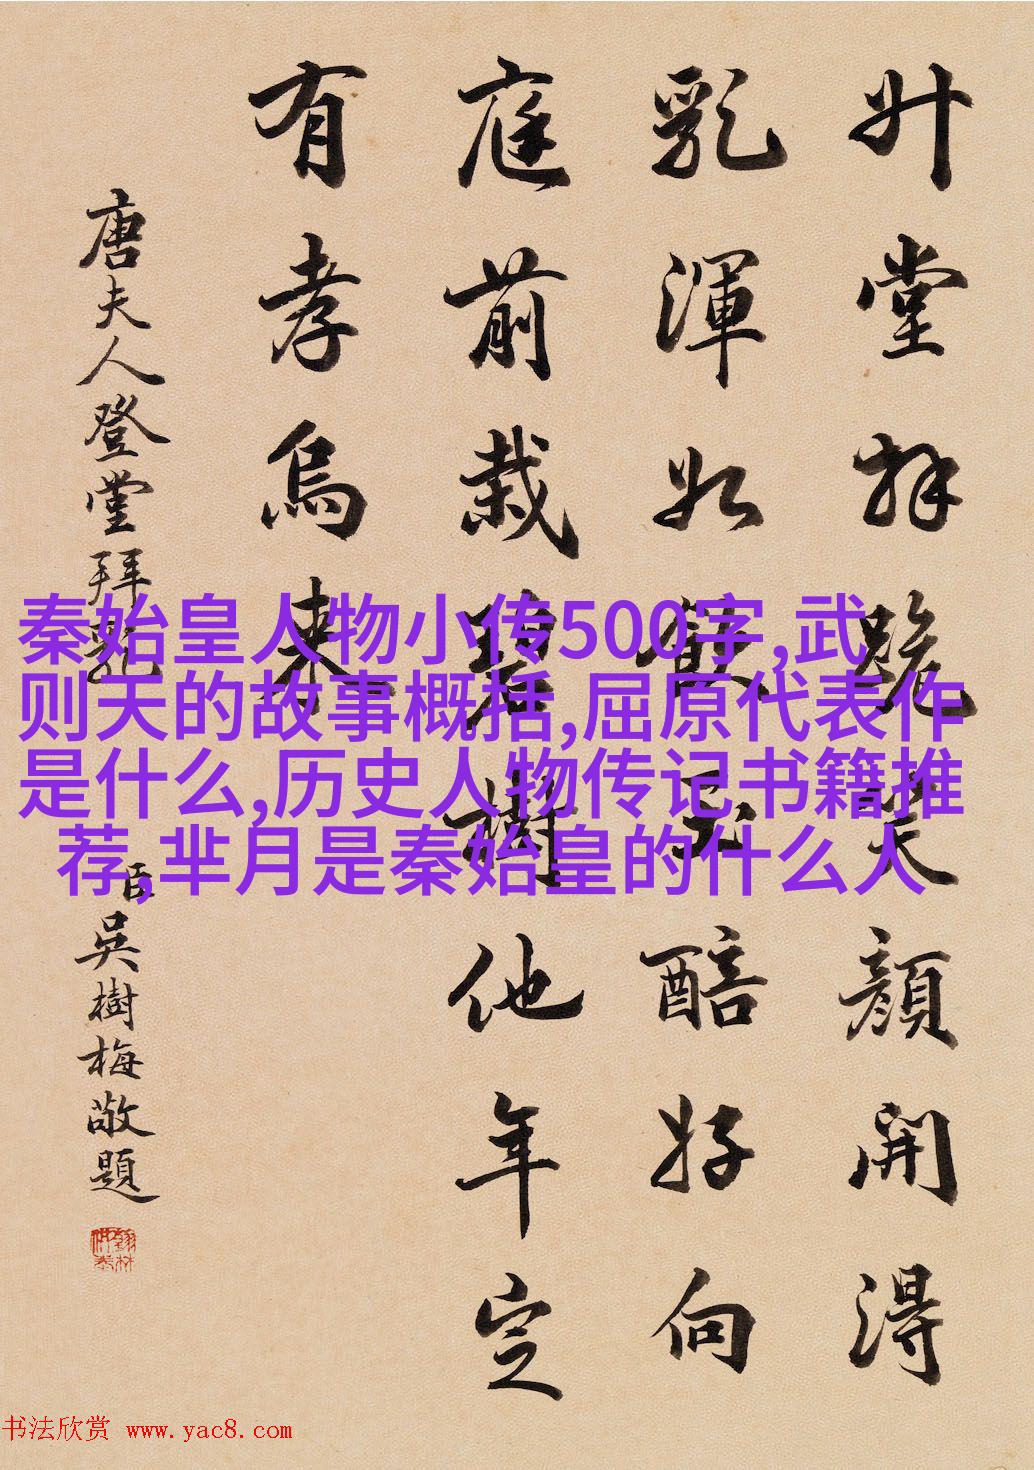 升堂拜跪笑顏開得
乳渾如飲玉醅好向
庭前栽碧樹他年定
有孝烏來
唐夫人登堂拜乳
臣吳樹梅敬題
秦始皇人物小传500字,武
则天的故事概括,屈原代表作
是什么,历史人物传记书籍推
荐,芈月是秦始皇的什么人
书法欣赏 www.yac8.com